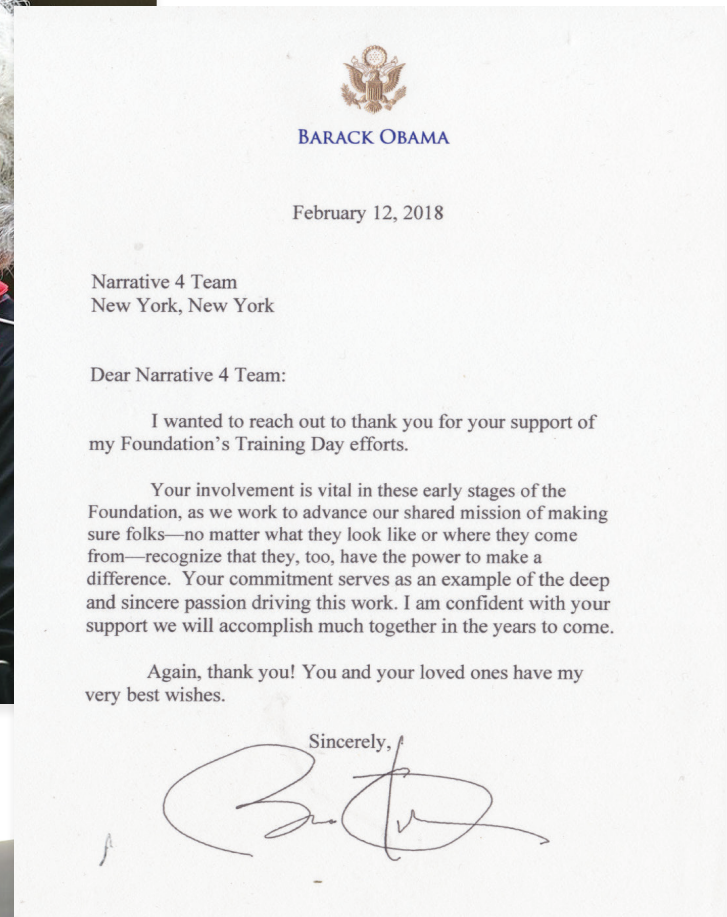 BARACK OBAMA
February 12, 2018
Narrative 4 Team
New York, New York
Dear Narrative 4 Team:
I wanted to reach out to thank you for your support of
my Foundation’s Training Day efforts.
Your involvement is vital in these early stages of the
Foundation, as we work to advance our shared mission of making
sure folks—no matter what they look like or where they come
from—recognize that they, too, have the power to make a
difference. Your commitment serves as an example of the deep
and sincere passion driving this work. I am confident with your
support we will accomplish much together in the years to come.
Again, thank you! You and your loved ones have my
very best wishes.
Sincerely,